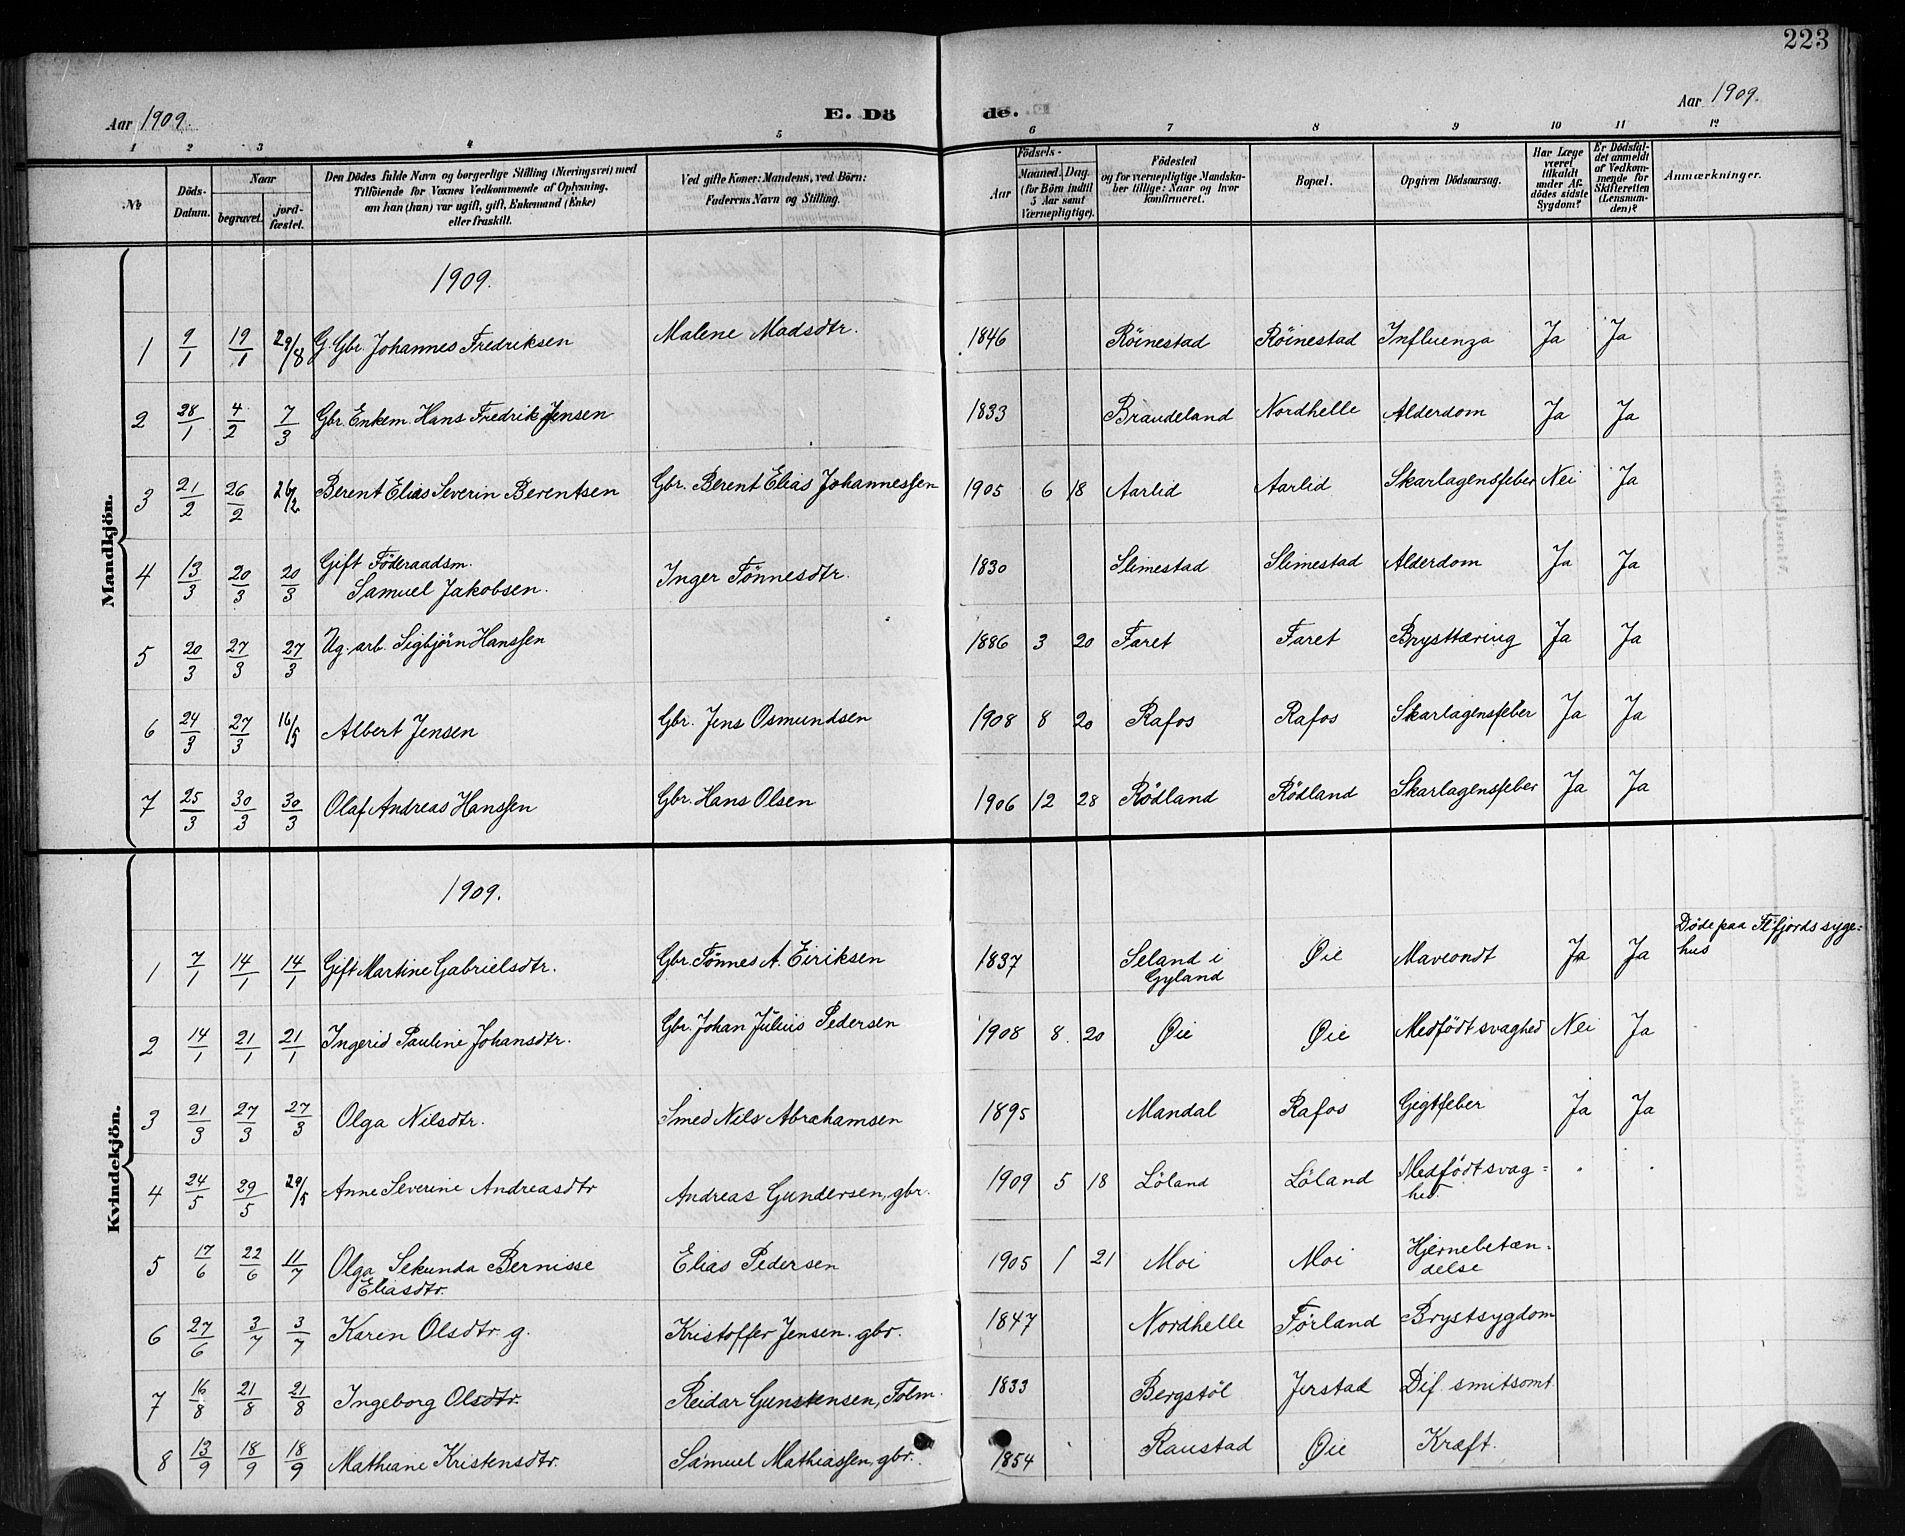 223
Aar 1909.
E. Döde.
Aar 1909.
1 2 3 4 5 6 7 8 9 10 11 12
№
Döds-Datum.
Naar begravet. jordfæstet.
Den Dödes fulde Navn og borgerlige Stilling (Næringsvei) med
Tilföiende for Voxnes Vedkommende af Oplysning,
om han (hun) var ugift, gift, Enkemand (Enke)
eller fraskilt.
Ved gifte Koner: Mandens, ved Börn:
Faderens Navn og Stilling.
Födsels-
Aar
Maaned. Dag.
(for Börn indtil
5 Aar samt
Værnepligtige).
Födested
og for værnepligtige Mandska-
ber tillige: Naar og hvor
konfirmeret.
Bopæl.
Opgiven Dödsaarsag.
Har Læge
været
tilkaldt
under Af-
dödes sidste
Sygdom?
Er Dödsfal-
det anmeldt
af Vedkom-
mende for
Skifteretten
(Lensman-
den)?
Anmærkninger.
Mandkjön.
1909.
1 9/1 19/1 29/8 G. Gbr. Johannes Fredriksen Malene Madsdtr. 1846 Röinestad Röinestad Influenza Ja Ja
2 28/1 4/2 7/3 Gbr. Enkem. Hans Fredrik Jensen 1833 Braudeland Nordhelle Alderdom Ja Ja
3 21/2 26/2 26/2 Berent Elias Severin Berentsen Gbr. Berent Elias Johannessen 1905 6 18 Aarlid Aarlid Skarlagensfeber Nei Ja
4 13/3 20/3 20/3 Gift Föderaadsm.
Samuel Jakobsen. Inger Tönnesdtr. 1830 Slimestad Slimestad Alderdom Ja Ja
5 20/3 27/3 27/3 Ug. arb. Sigbjörn Hanssen 1886 3 20 Faret Faret Brysttæring Ja Ja
6 24/3 27/3 16/5 Albert Jensen Gbr. Jens Osmundsen 1908 8 20 Rafos Rafos Skarlagensfeber Ja Ja
7 25/3 30/3 30/3 Olaf Andreas Hanssen Gbr. Hans Olsen 1906 12 28 Rödland Rödland Skarlagensfeber Ja Ja
Kvindekjön.
1909.
1 7/1 14/1 14/1 Gift Martine Gabrielsdtr. Gbr. Tönnes A. Eiriksen 1837 Seland i
Gyland Øie Maveondt Ja Ja Döde paa Flfjords syge-
hus
2 14/1 21/1 21/1 Ingerid Pauline Johansdtr. Gbr. Johan Julius Pedersen 1908 8. 20 Øie Øie Medfödt svaghed Nei Ja
3 21/3 27/3 27/3 Olga Nilsdtr. Smed Nils Abrahamsen 1895 Mandal Rafos Gigtfeber Ja Ja
4 24/5 29/5 29/5 Anne Severine Andreasdtr Andreas Gundersen, gbr. 1909 5 18 Löland Löland Medfödt svag-
hed.
5 17/6 22/6 11/7 Olga Sekunda Bernisse
Eliasdtr. Elias Pedersen 1905 1 21 Moi Moi Hjernebetæn-
delse
6 27/6 3/7 3/7 Karen Olsdtr. g. Kristoffer Jensen. gbr. 1847 Nordhelle Förland Brystsygdom
7 16/8 21/8 21/8 Ingeborg Olsdtr. Reidar Gunstensen, Folm. 1833 Bergstöl Jerstad Dif. smitsomt
8 13/9 18/9 18/9 Mathiane Kristensdtr. Samuel Mathiassen, gbr. 1854 Raustad Øie Kræft.